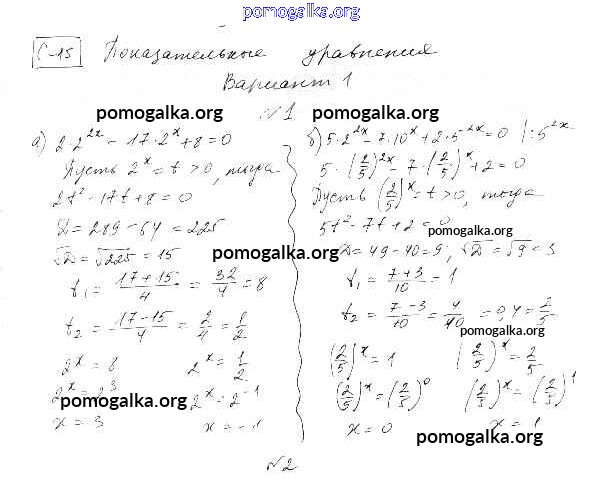 pomogalka.org
С-15 Показательные уравнения
Вариант 1
pomogalka.org pomogalka.org
№1
а) 2·2^{2x} - 17·2^x + 8 = 0
Пусть 2^x = t > 0, тогда
2t² - 17t + 8 = 0
D = 289 - 64 = 225
√D = √225 = 15
pomogalka.org
t₁ = (17+15)/4 = 32/4 = 8
t₂ = (17-15)/4 = 2/4 = 1/2
2^x = 8 2^x = 1/2
2^x = 2^3 2^x = 2^{-1}
pomogalka.org
x = 3 x = -1
б) 5·2^{2x} - 7·10^x + 2·5^{2x} = 0 |:5^{2x}
5·(2/5)^{2x} - 7·(2/5)^x + 2 = 0
Пусть (2/5)^x = t > 0, тогда
5t² - 7t + 2 = 0
pomogalka.org
D = 49 - 40 = 9; √D = √9 = 3
t₁ = (7+3)/10 = 1
t₂ = (7-3)/10 = 4/10 = 0,4 = 2/5
pomogalka.org
(2/5)^x = 1 (2/5)^x = 2/5
(2/5)^x = (2/5)^0 (2/5)^x = (2/5)^1
x = 0 x = 1
pomogalka.org
№2